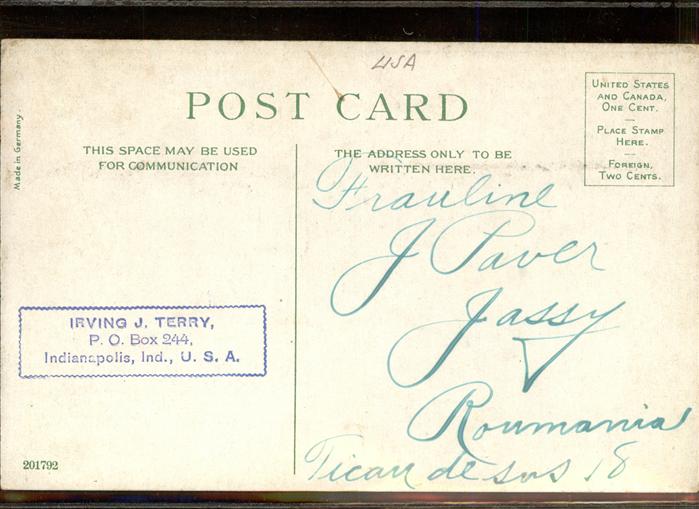 USA
POST CARD
Made in Germany.
THIS SPACE MAY BE USED
FOR COMMUNICATION
THE ADDRESS ONLY TO BE
WRITTEN HERE.
UNITED STATES
AND CANADA,
ONE CENT.
—
PLACE STAMP
HERE.
—
FOREIGN,
TWO CENTS.
Frauline
J Paver
Jassy
Roumania
Ticau de sus 18
IRVING J. TERRY,
P. O. Box 244,
Indianapolis, Ind., U. S. A.
201792